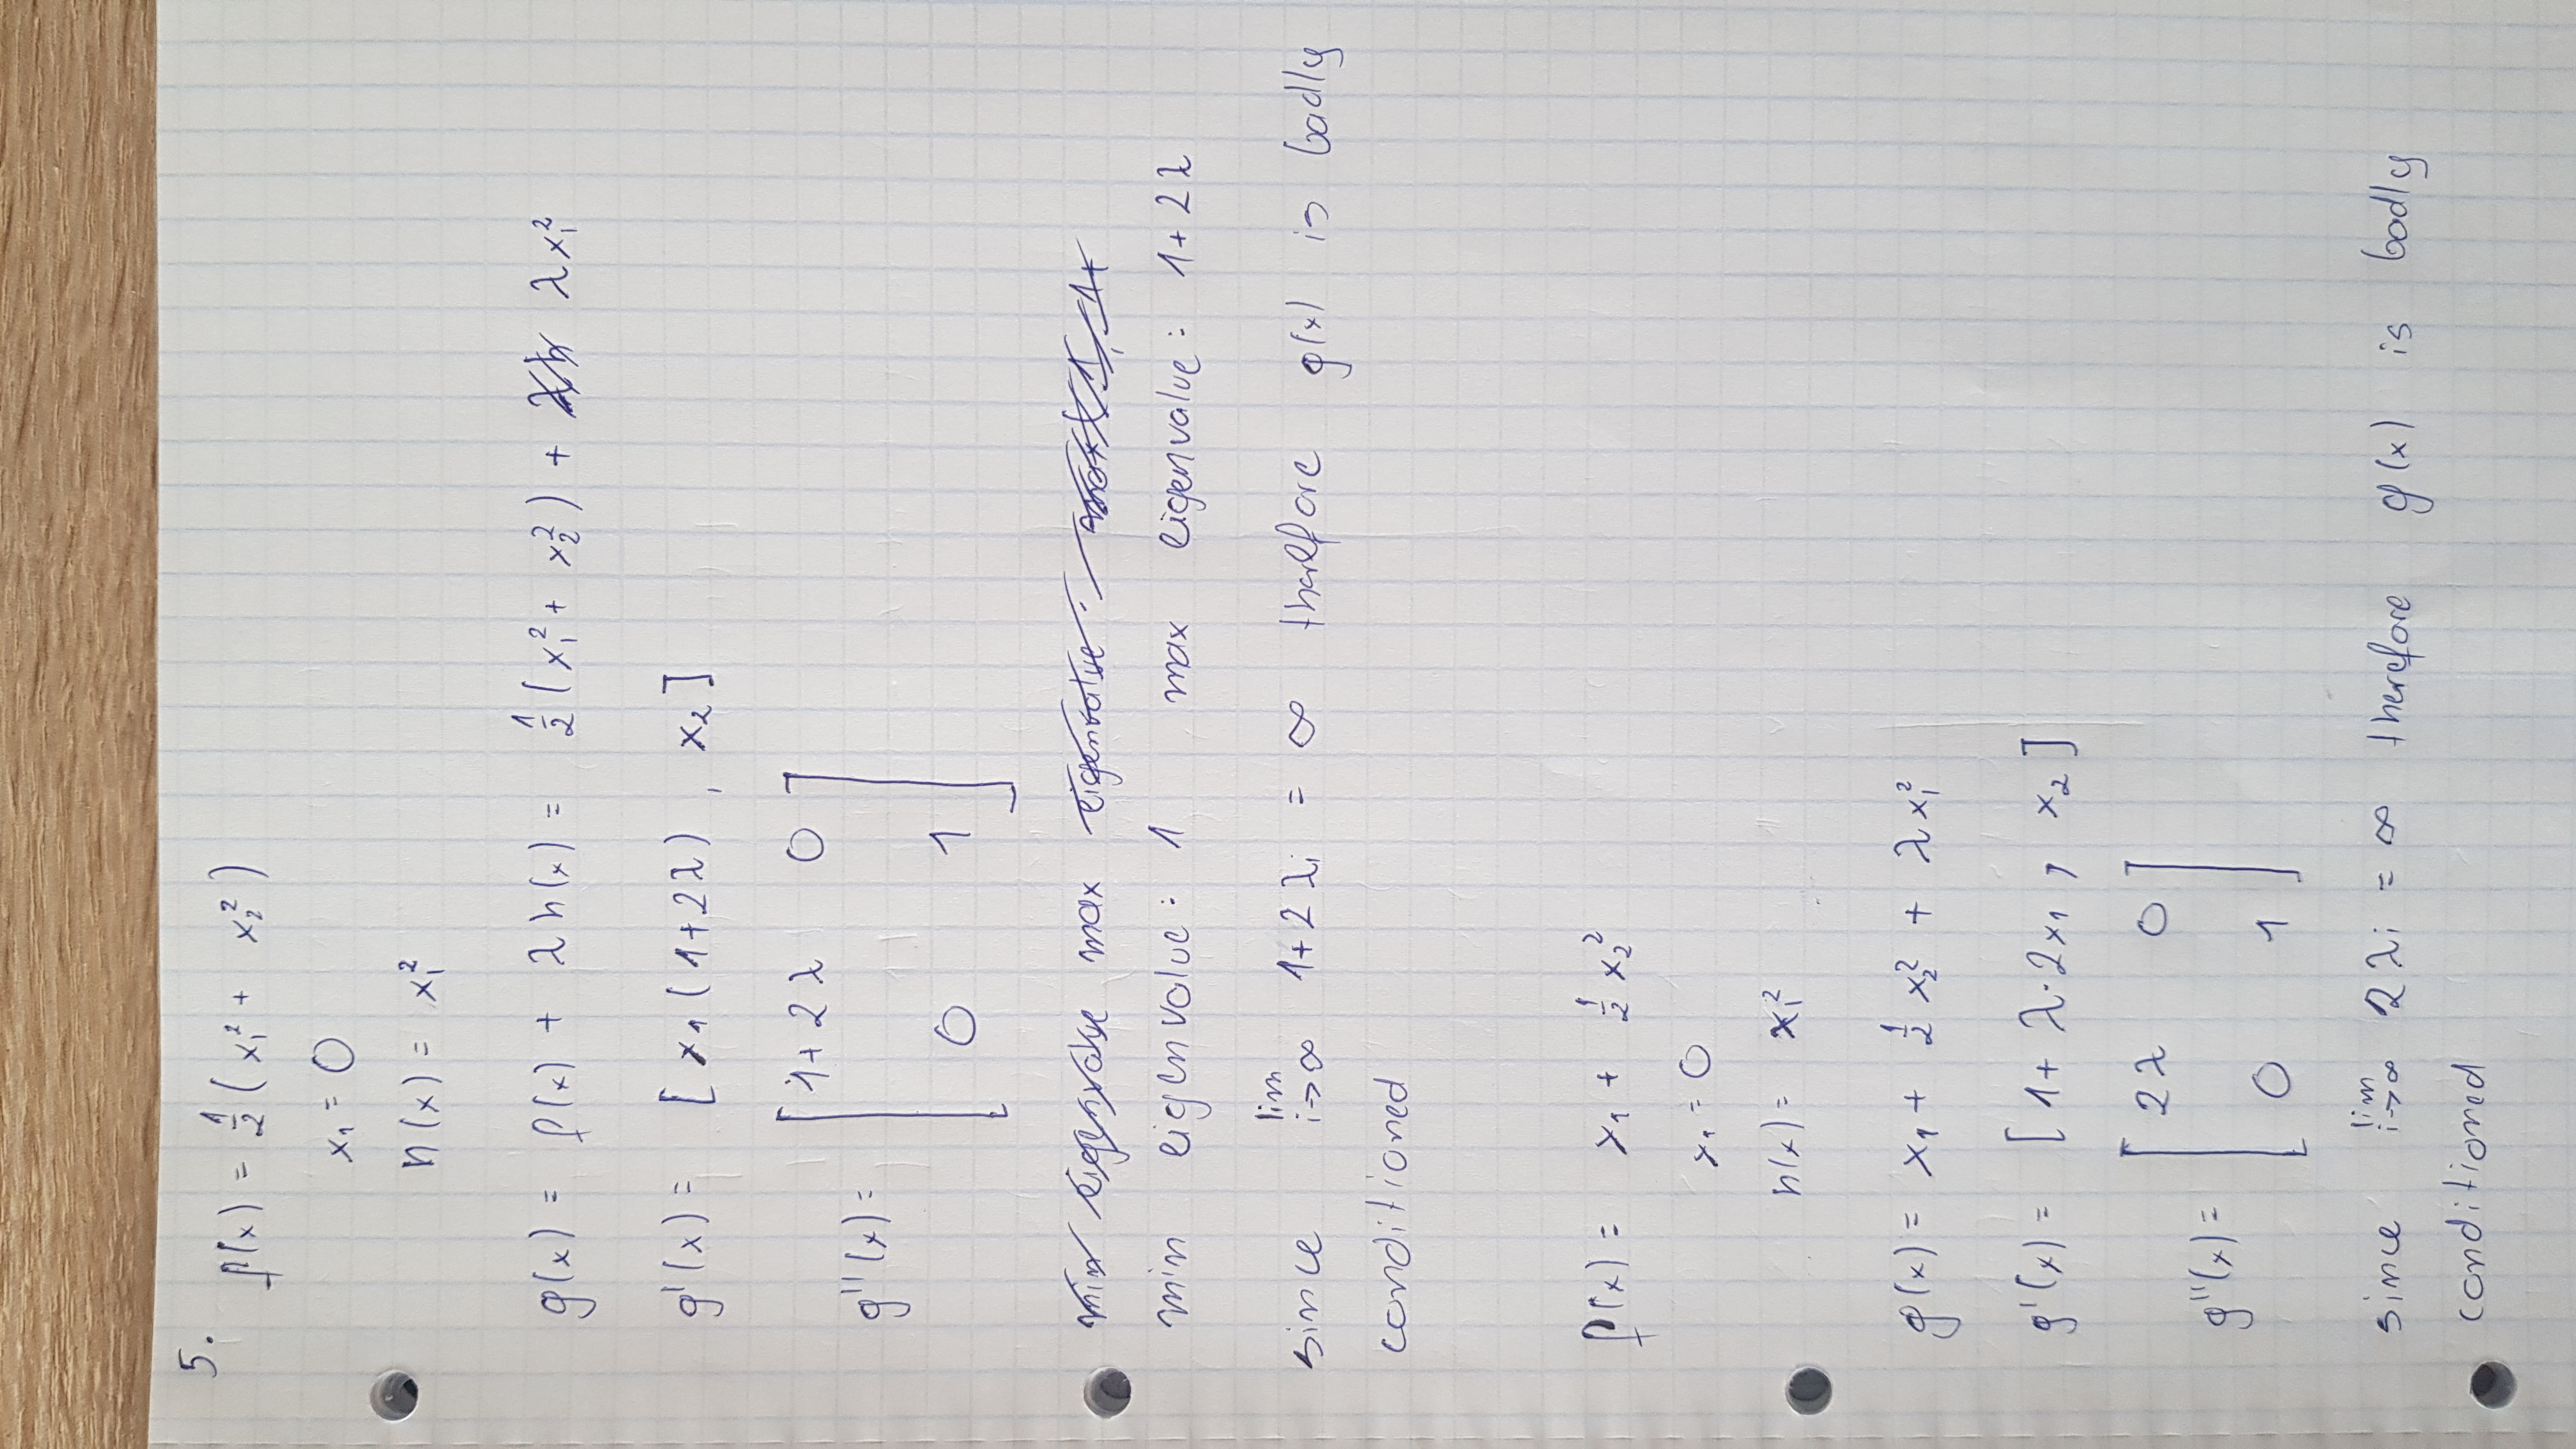 5.
f(x) = 1/2 (x₁² + x₂²)
x₁ = 0
h(x) = x₁²
g(x) = f(x) + λ h(x) = 1/2 (x₁² + x₂²) + λh λ x₁²
g'(x) = [ x₁ (1+2λ) , x₂ ]
g''(x) = [ 1+2λ 0
0 1 ]
min eigenvalue max eigenvalue : max { 1, 1+
min eigenvalue : 1 max eigenvalue : 1+2λ
since lim i→∞ 1+2λᵢ = ∞ therefore g(x) is badly
conditioned
f(x) = x₁ + 1/2 x₂²
x₁ = 0
h(x) = x₁²
g(x) = x₁ + 1/2 x₂² + λ x₁²
g'(x) = [ 1+ λ·2x₁ , x₂ ]
g''(x) = [ 2λ 0
0 1 ]
since lim i→∞ 2λᵢ = ∞ therefore g(x) is badly
conditioned